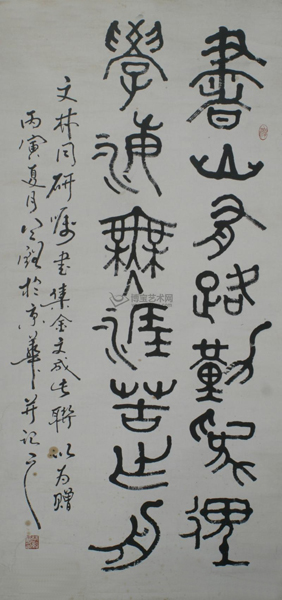 書山有路勤為徑
學海無涯苦作舟
文林同研嘱書集金文成此聯以為贈
丙寅夏月於京華并記
博宝艺术网